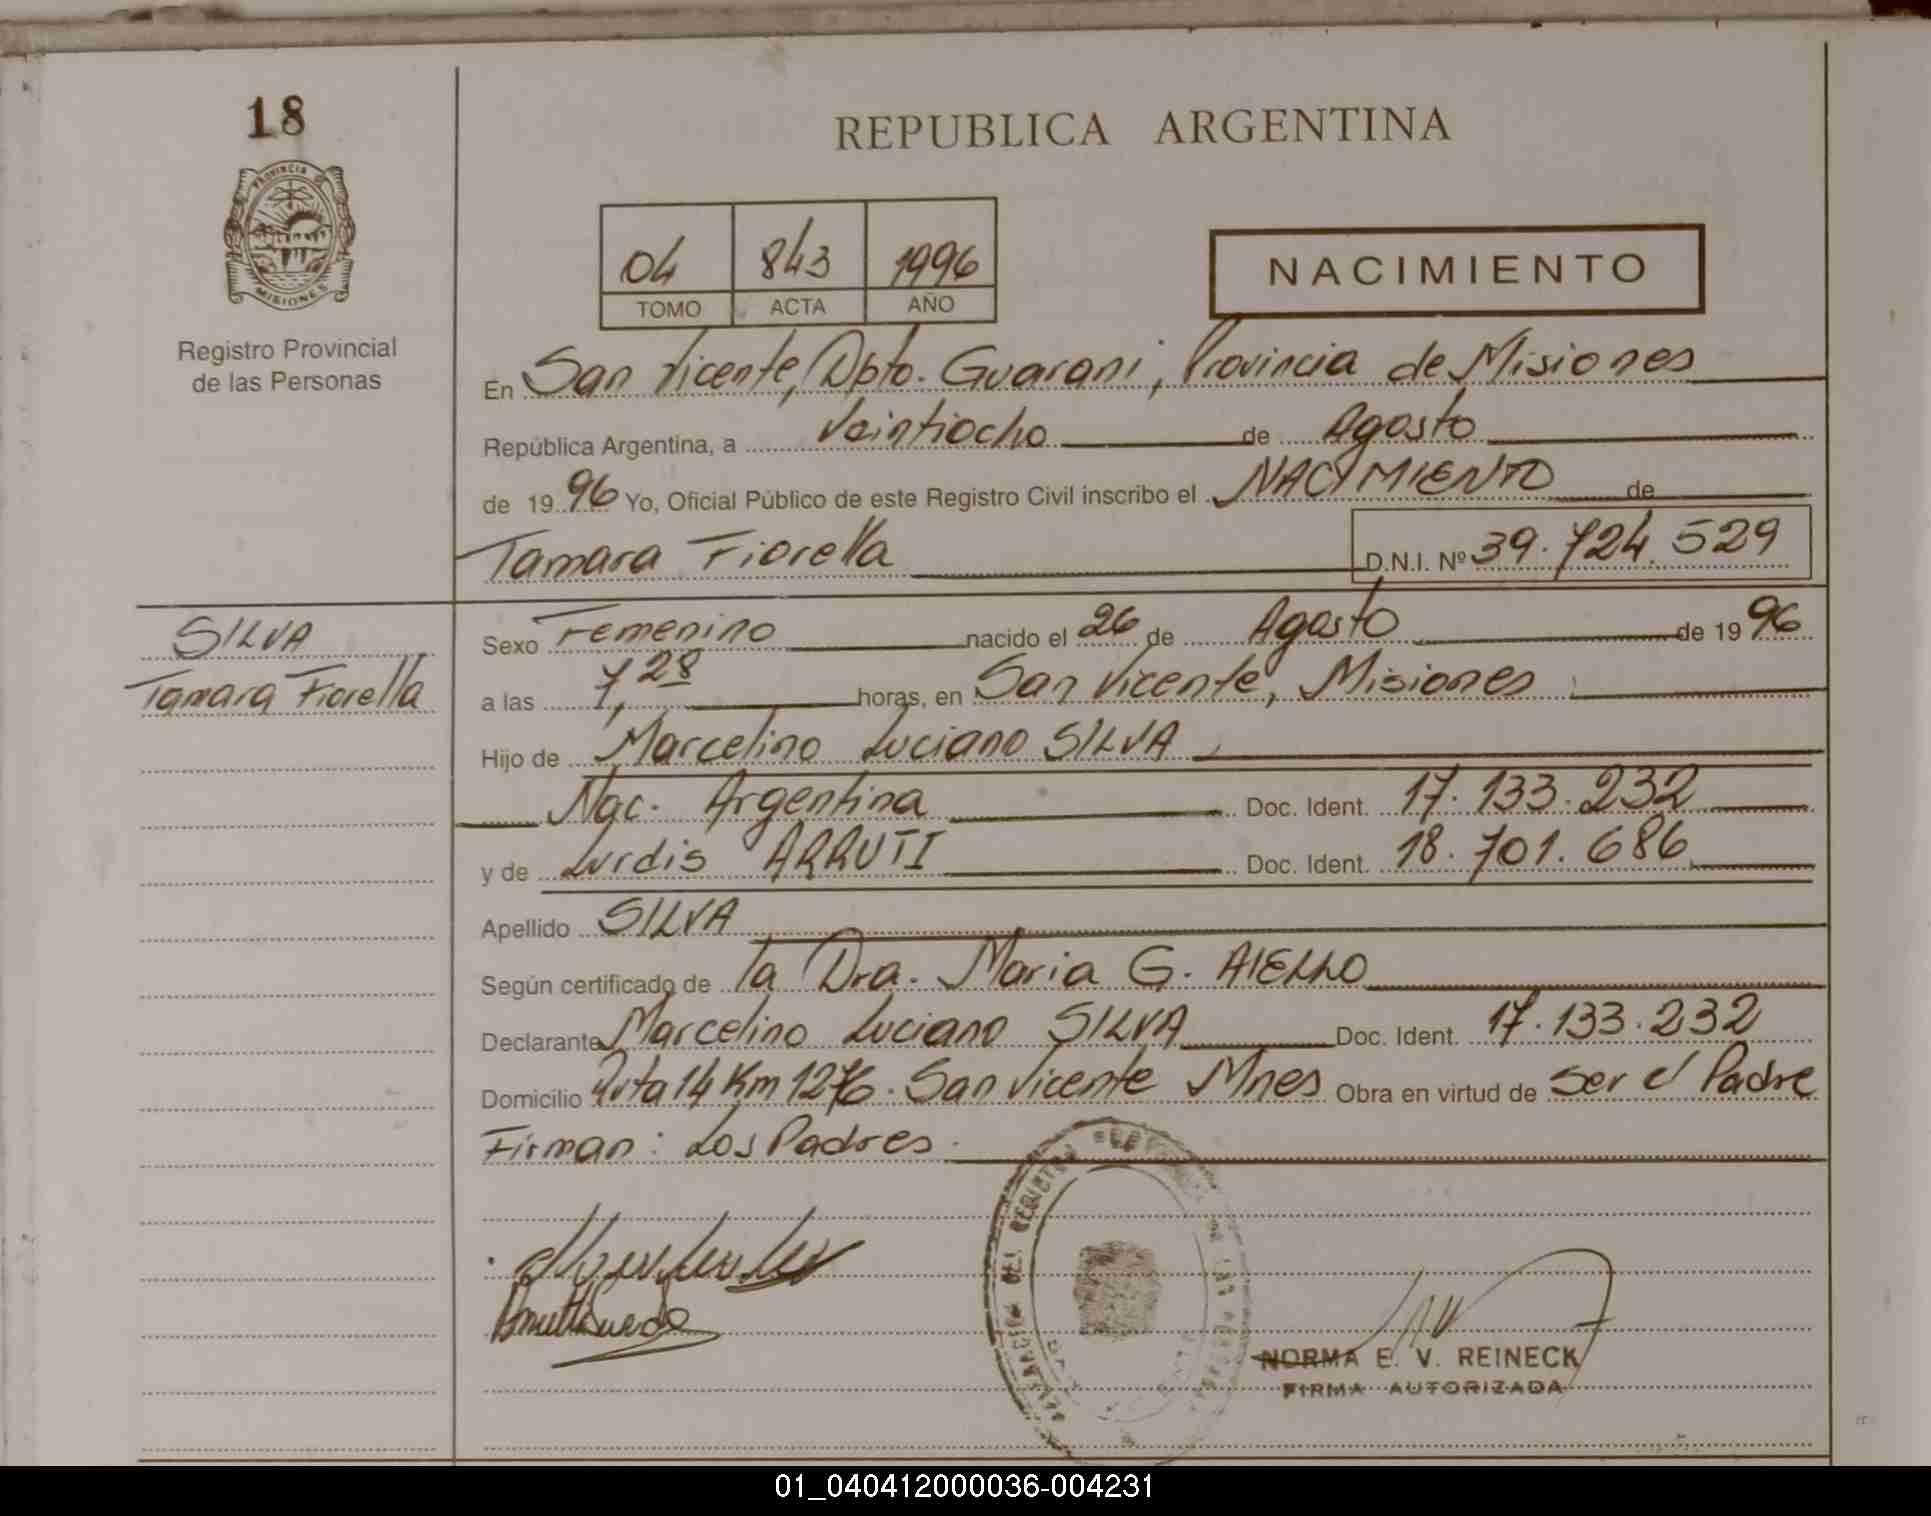 18
PROVINCIA DE
MISIONES
Registro Provincial
de las Personas
REPUBLICA ARGENTINA
04 843 1996
TOMO ACTA AÑO
NACIMIENTO
En San Vicente, Dpto. Guarani, Provincia de Misiones
República Argentina, a Veintiocho de Agosto
de 1996 Yo, Oficial Público de este Registro Civil inscribo el NACIMIENTO de
Tamara Fiorella D.N.I. Nº 39.724.529
SILVA
Tamara Fiorella
Sexo Femenino nacido el 26 de Agosto de 1996
a las 7,28 horas, en San Vicente, Misiones
Hijo de Marcelino Luciano SILVA
Nac. Argentina Doc. Ident. 17.133.232
y de Lurdis ARRUTI Doc. Ident. 18.701.686
Apellido SILVA
Según certificado de la Dra. Maria G. AIELLO
Declarante Marcelino Luciano SILVA Doc. Ident. 17.133.232
Domicilio Ruta 14 Km 1276. San Vicente Mnes Obra en virtud de Ser el Padre
Firman: Los Padres.
DEL REGISTRO DE LAS
NORMA E. V. REINECK
FIRMA AUTORIZADA
01_040412000036-004231